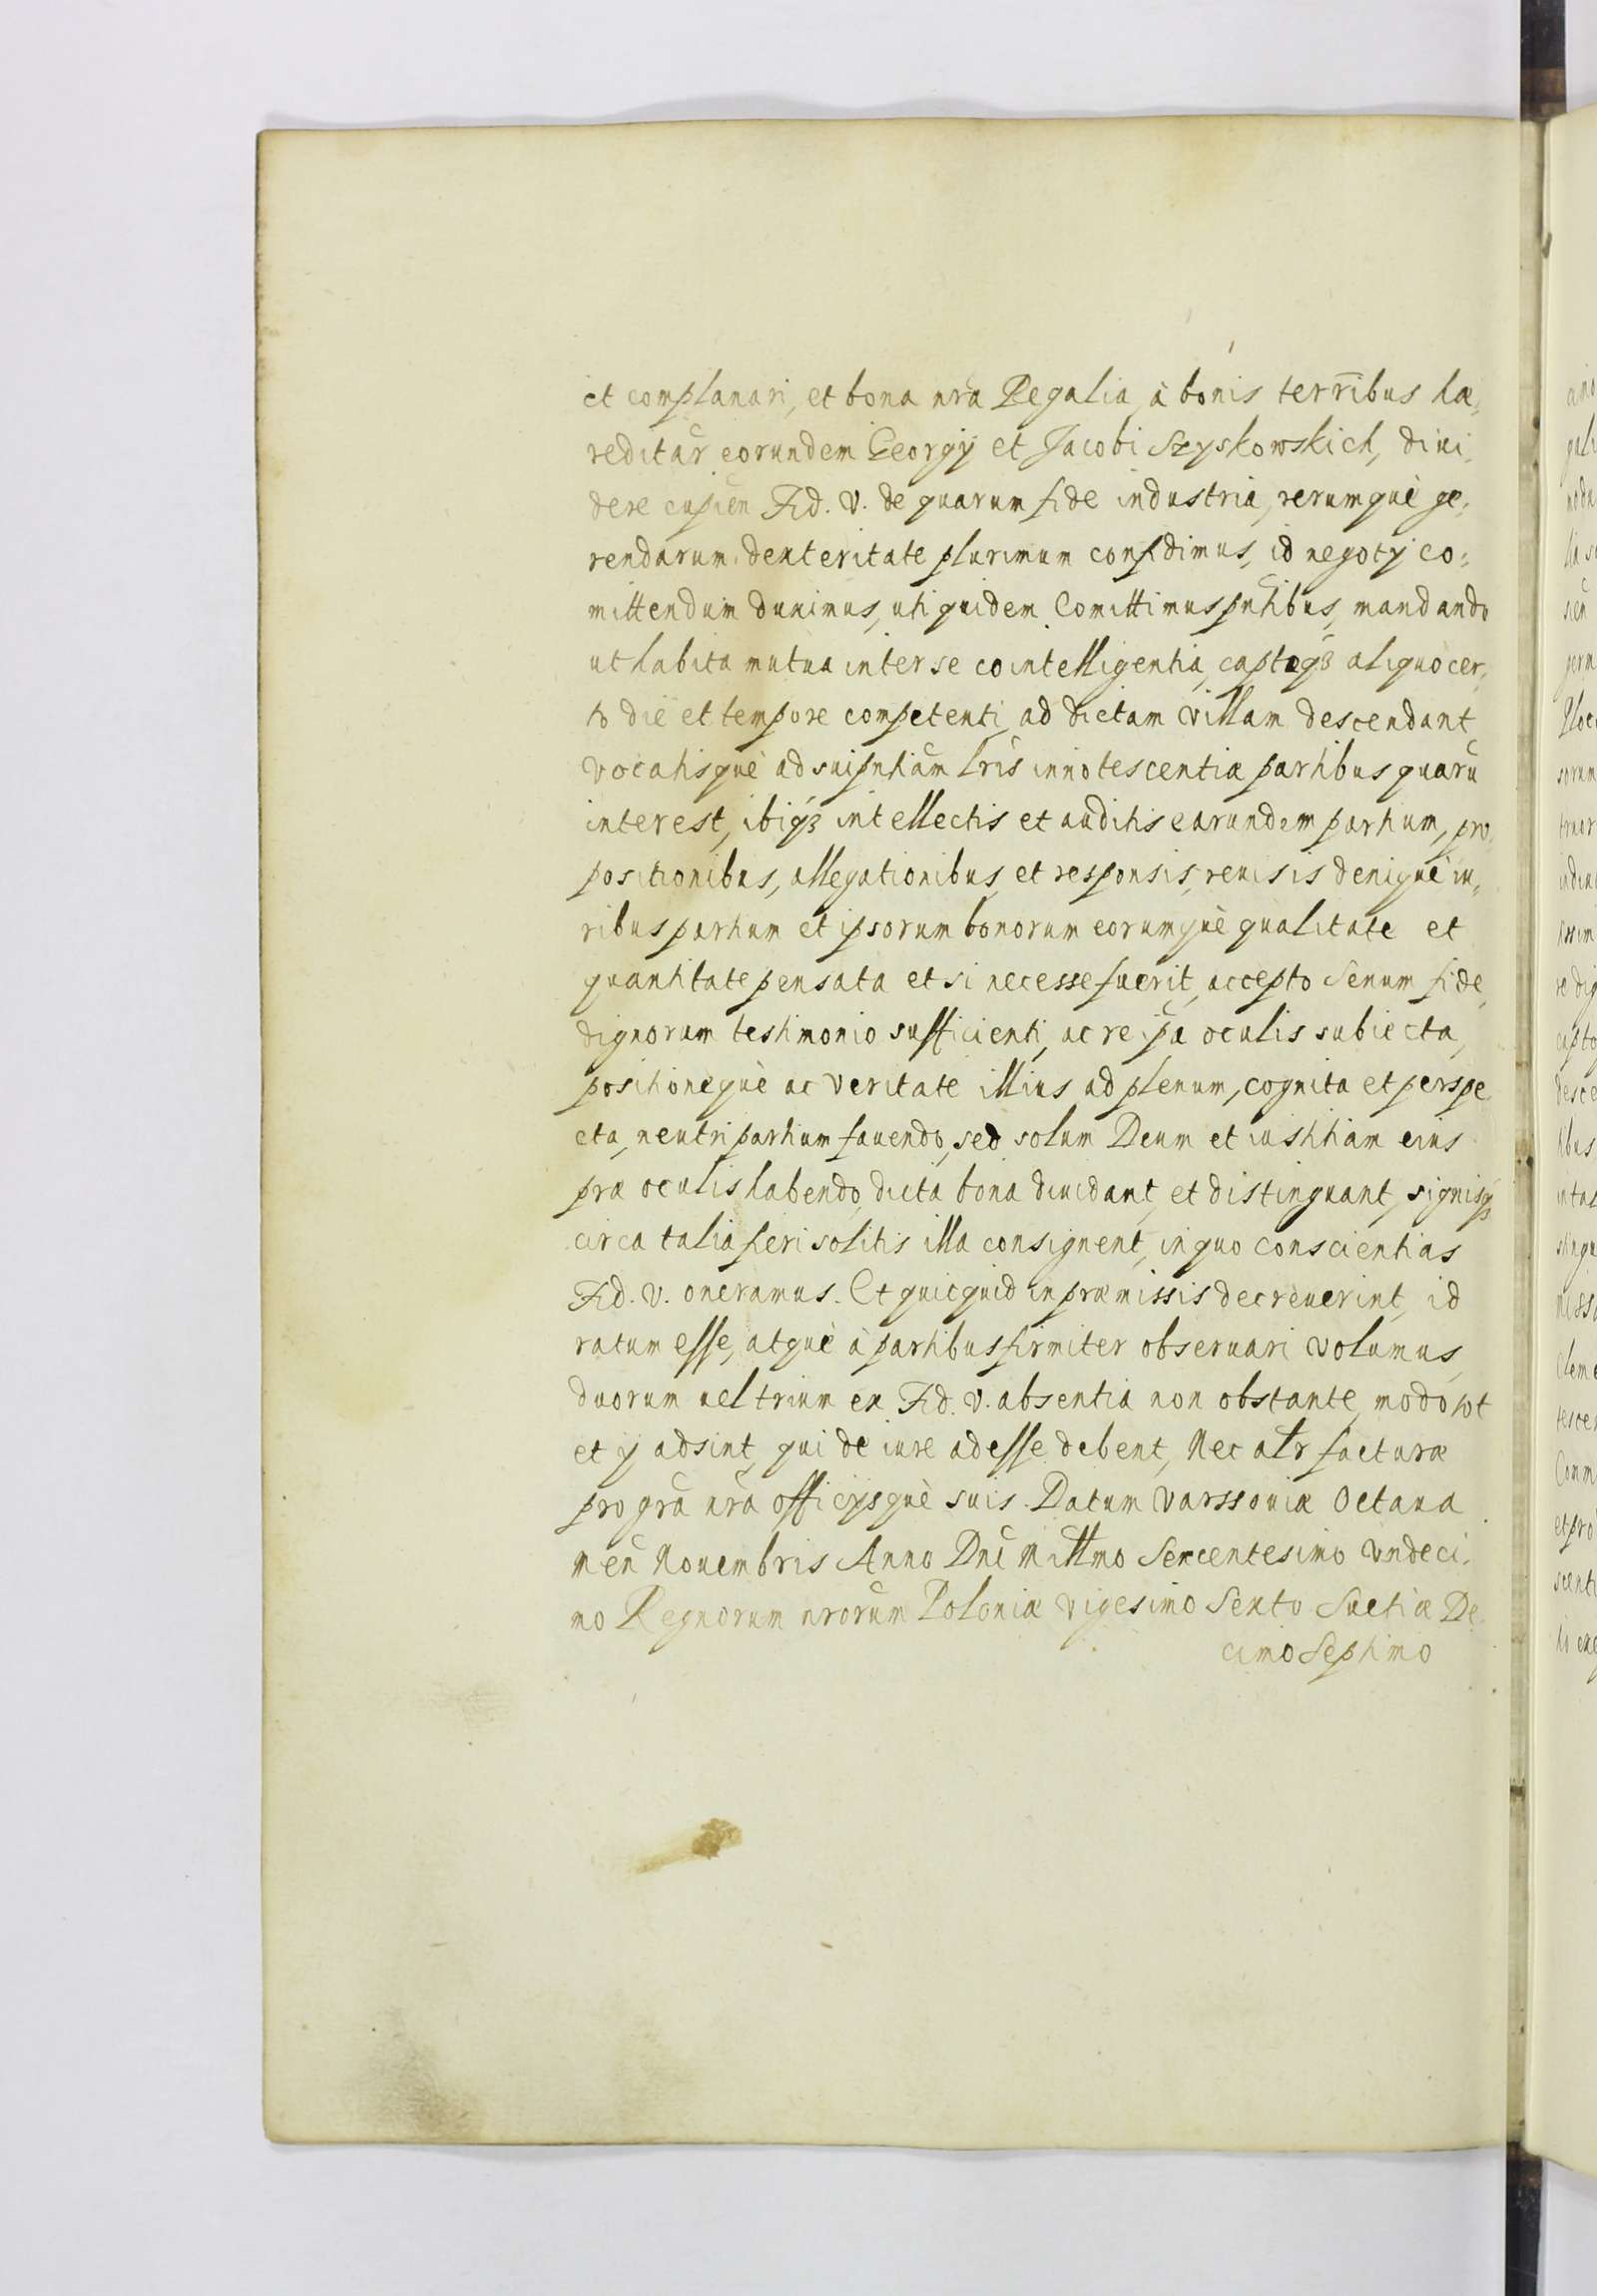 et complanari, et bona nrã Regalia à bonis terr̃ibus hæ,
reditar̃ eorundem Georgij et Jacobi Szyskowskich, diui,
dere cupien̄ Fid. V. de quarum fide industria, rerumquè ge,
rendarum dexteritate plurimum confidimus, id negotij co,
mittendum duximus, uti quidem Comittimus pñtibus, mandando
ut habita mutua inter se cointelligentia, captoqȝ aliquo cer,
to die et tempore competenti ad dictam Villam descendant
Vocatisquè ad sui pñtiam̃ lrĩs innotescentiæ partibus quarũ
interest, ibiqȝ intellectis et auditis earundem partium, pro
positionibus, allegationibus et responsis, reuisis deniquè iu,
ribus partium et ipsorum bonorum eorumquè qualitate et
quantitate pensata et si necesse fuerit, accepto Senum fide
dignorum testimonio sufficienti, ac re ip̃a oculis subiecta,
positionequè ac Veritate illius ad plenum, cognita et perspe
cta, neutri partium fauendo, sed solum Deum et iustitiam eius
præ oculis habendo, dicta bona diuidant, et distinguant, signisqȝ
circa talia fieri solitis illa consignent, in quo conscientias
Fid. V. oneramus. Et quicquid in præmissis decreuerint, id
ratum esse, atquè à partibus firmiter obseruari Volumus,
duorum uel trium ex Fid. V. absentia non obstante, modo tot
et ij adsint, qui de iure adesse debent, Nec altr facturæ
pro grã nrã officijsquè suis. Datum Varssouiæ Octaua
men̄ Nouembris Anno Dnĩ Millmo Sexcentesimo Vndeci,
mo Regnorum nrorũm Poloniæ Vigesimo Sexto Suetiæ De
cimo Septimo